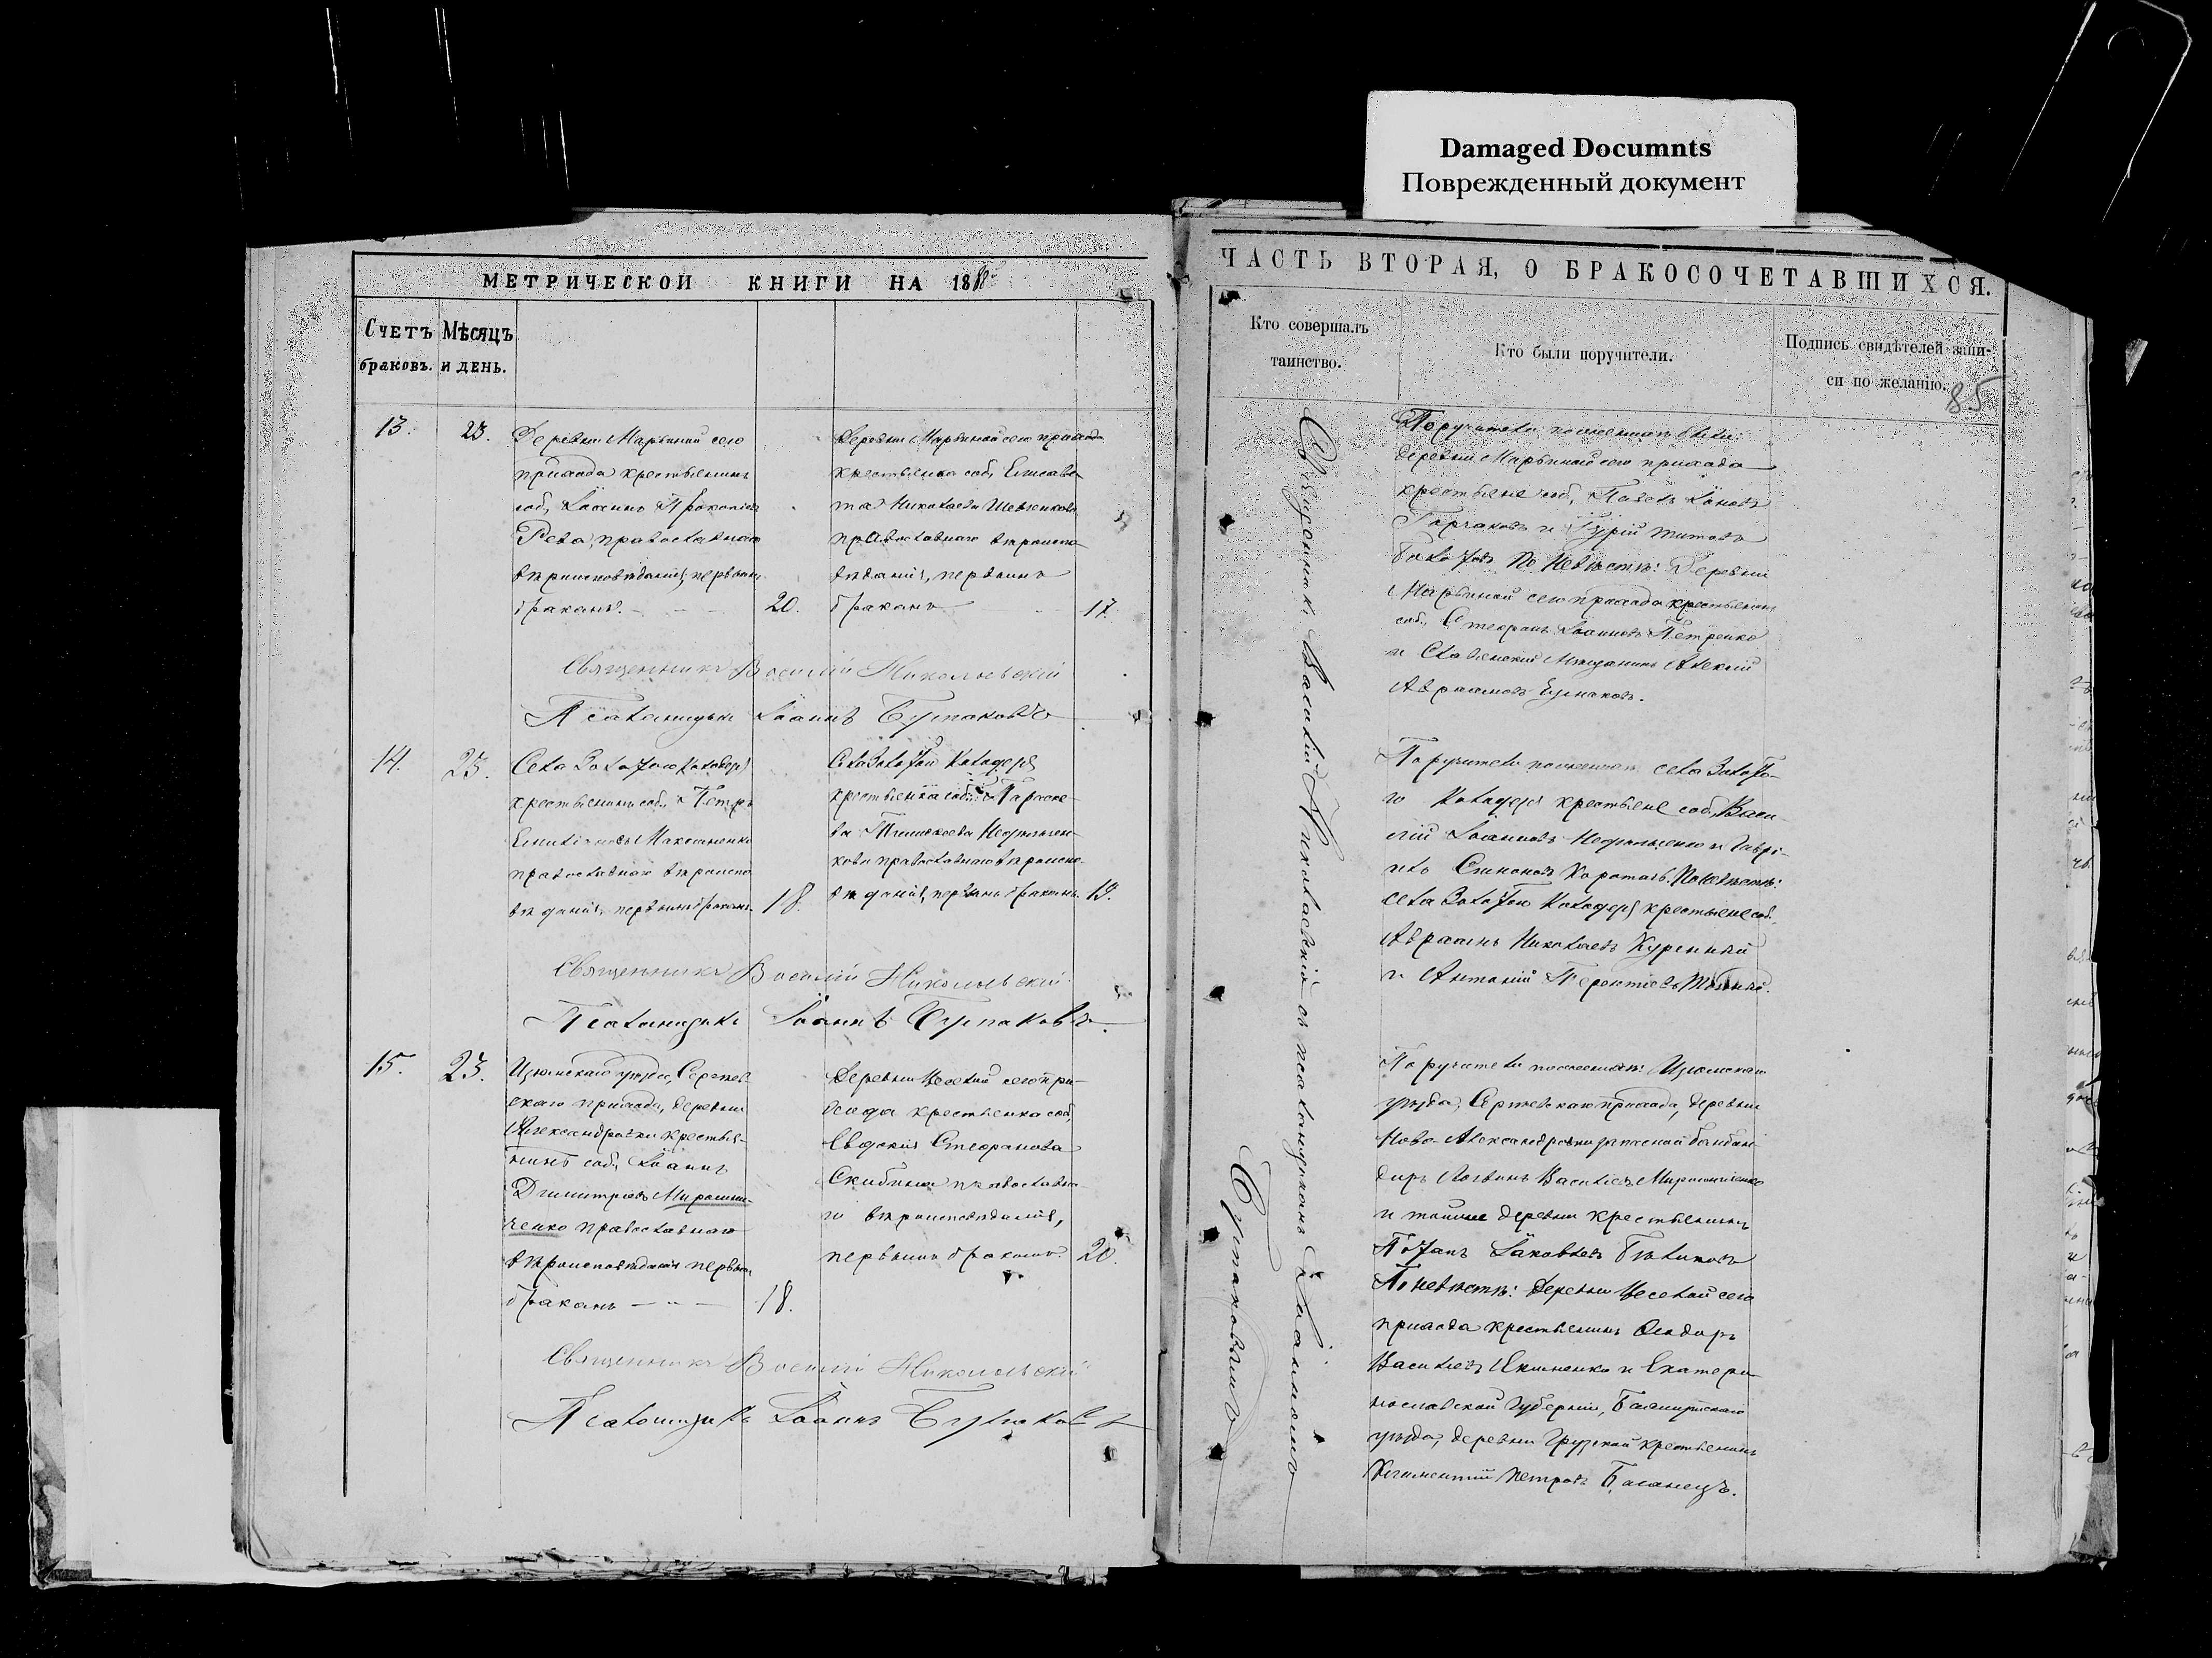 Damaged Documnts
Поврежденный документ
МЕТРИЧЕСКОЙ КНИГИ НА 18
Счетъ браковъ.
Мѣсяцъ и день.
13.
23.
Деревни Марьиной сего
прихода крестьянинъ
соб., Іоаннъ Прокопіевъ
Рева, православнаго
вѣроисповѣданія, первымъ
бракомъ.
20.
Деревни Марьиной сего прихода
крестьянка соб., Елисаве-
та Николаева Шевченкова
православнаго вѣроиспо-
вѣданія, первымъ
бракомъ
17.
Священникъ Василій Никольевскій
Псаломщикъ Іоаннъ Бурлаковъ
14.
23.
Села Золотого Колодезя
крестьянинъ соб., Петръ
Емиліановъ Максименко
православнаго вѣроиспо
вѣданія, первымъ бракомъ.
18.
Села Золотой Колодезя
крестьянка соб., Параске-
ва
православнаго вѣроиспо-
вѣданія, первымъ бракомъ.
19.
Священникъ Василій Никольевскій
Псаломщикъ Іоаннъ Бурлаковъ.
15.
23.
Изюмскаго уѣзда, Сергіев-
скаго прихода, деревни
Александровки крестья-
нинъ соб., Іоаннъ
Димитріевъ Мирошни-
ченко православнаго
вѣроисповѣданія первымъ
бракомъ
18.
Деревни Веселой сего при-
хода крестьянка соб.,
Евдокія Стефанова
Скибина православна-
го вѣроисповѣданія,
первымъ бракомъ
20.
Священникъ Василій Никольевскій
Псаломщикъ Іоаннъ Бурлаковъ
ЧАСТЬ ВТОРАЯ, О БРАКОСОЧЕТАВШИХСЯ.
Кто совершалъ
таинство.
Кто были поручители.
Подпись свидѣтелей запи-
си по желанію.
85
Священникъ Василій Николаевскій съ псаломщикомъ Іоанномъ
Поручители по женихѣ были:
деревни Марьиной сего прихода
крестьяне соб., Павелъ
Горчаковъ и Гурій Титовъ
По невѣстѣ: Деревни
Марьиной сего прихода крестьянинъ
соб., Стефанъ Іоанновъ Петренко
и Славянскій Мѣщанинъ Алексій
Авраамовъ
Поручители по женихѣ села Золото-
го Колодезя крестьяне соб., Васи-
лій Іоанновъ и Гаврі-
илъ Симоновъ По невѣстѣ:
села Золотого Колодезя крестьяне соб.,
Авраамъ Николаевъ Куренный
и Антоній Терентіевъ
Поручители по женихѣ: Изюмскаго
уѣзда, Сергіевскаго прихода, деревни
Ново-Александровки запасной бомбан-
диръ Логвинъ Васильевъ Мирошниченко
и той же деревни крестьянинъ
Іаковлевъ
По невѣстѣ: Деревни Веселой сего
прихода крестьянинъ Ѳеодоръ
Васильевъ Якименко и Екатери-
нославской Губерніи, Бахмутскаго
уѣзда, деревни Грузской крестьянинъ
Климентій Петровъ Баганецъ.